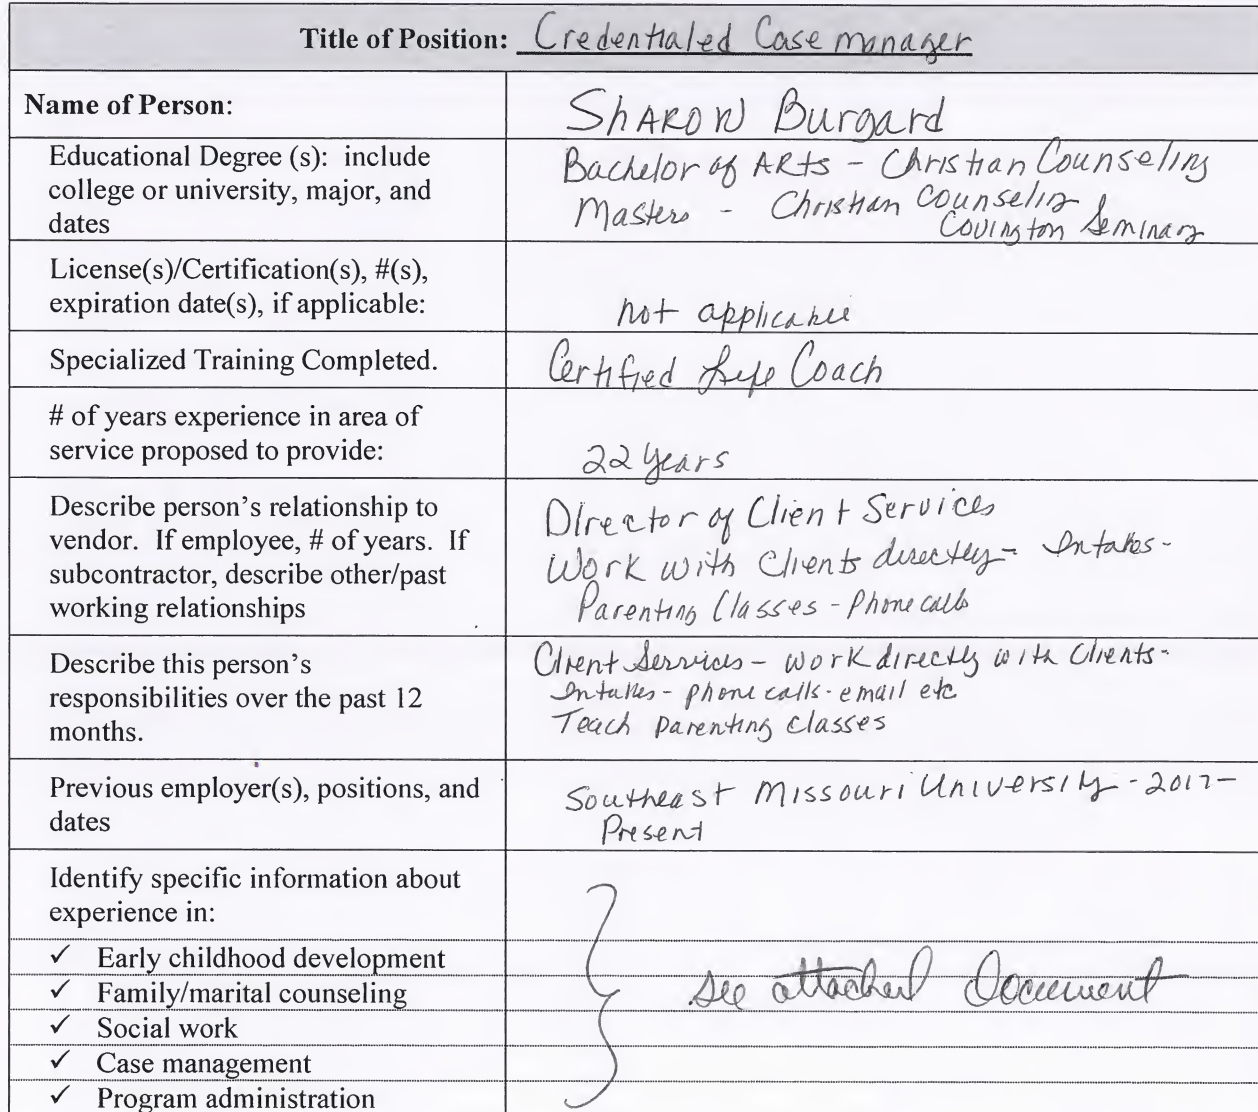 Title of Position: Credentialed Case manager
Name of Person:
Sharon Burgard
Educational Degree (s): include
college or university, major, and
dates
Bachelor of Arts - Christian Counseling
Masters - Christian Counseling
Covington Seminary
License(s)/Certification(s), #(s),
expiration date(s), if applicable:
not applicable
Specialized Training Completed.
Certified Life Coach
# of years experience in area of
service proposed to provide:
22 years
Describe person’s relationship to
vendor. If employee, # of years. If
subcontractor, describe other/past
working relationships
Director of Client Services
Work with Clients directly - Intakes -
Parenting Classes - Phone calls
Describe this person’s
responsibilities over the past 12
months.
Client Services - work directly with Clients -
Intakes - phone calls - email etc
Teach parenting classes
Previous employer(s), positions, and
dates
Southeast Missouri University - 2017 -
Present
Identify specific information about
experience in:
✓ Early childhood development
✓ Family/marital counseling
✓ Social work
✓ Case management
✓ Program administration
See attached Document